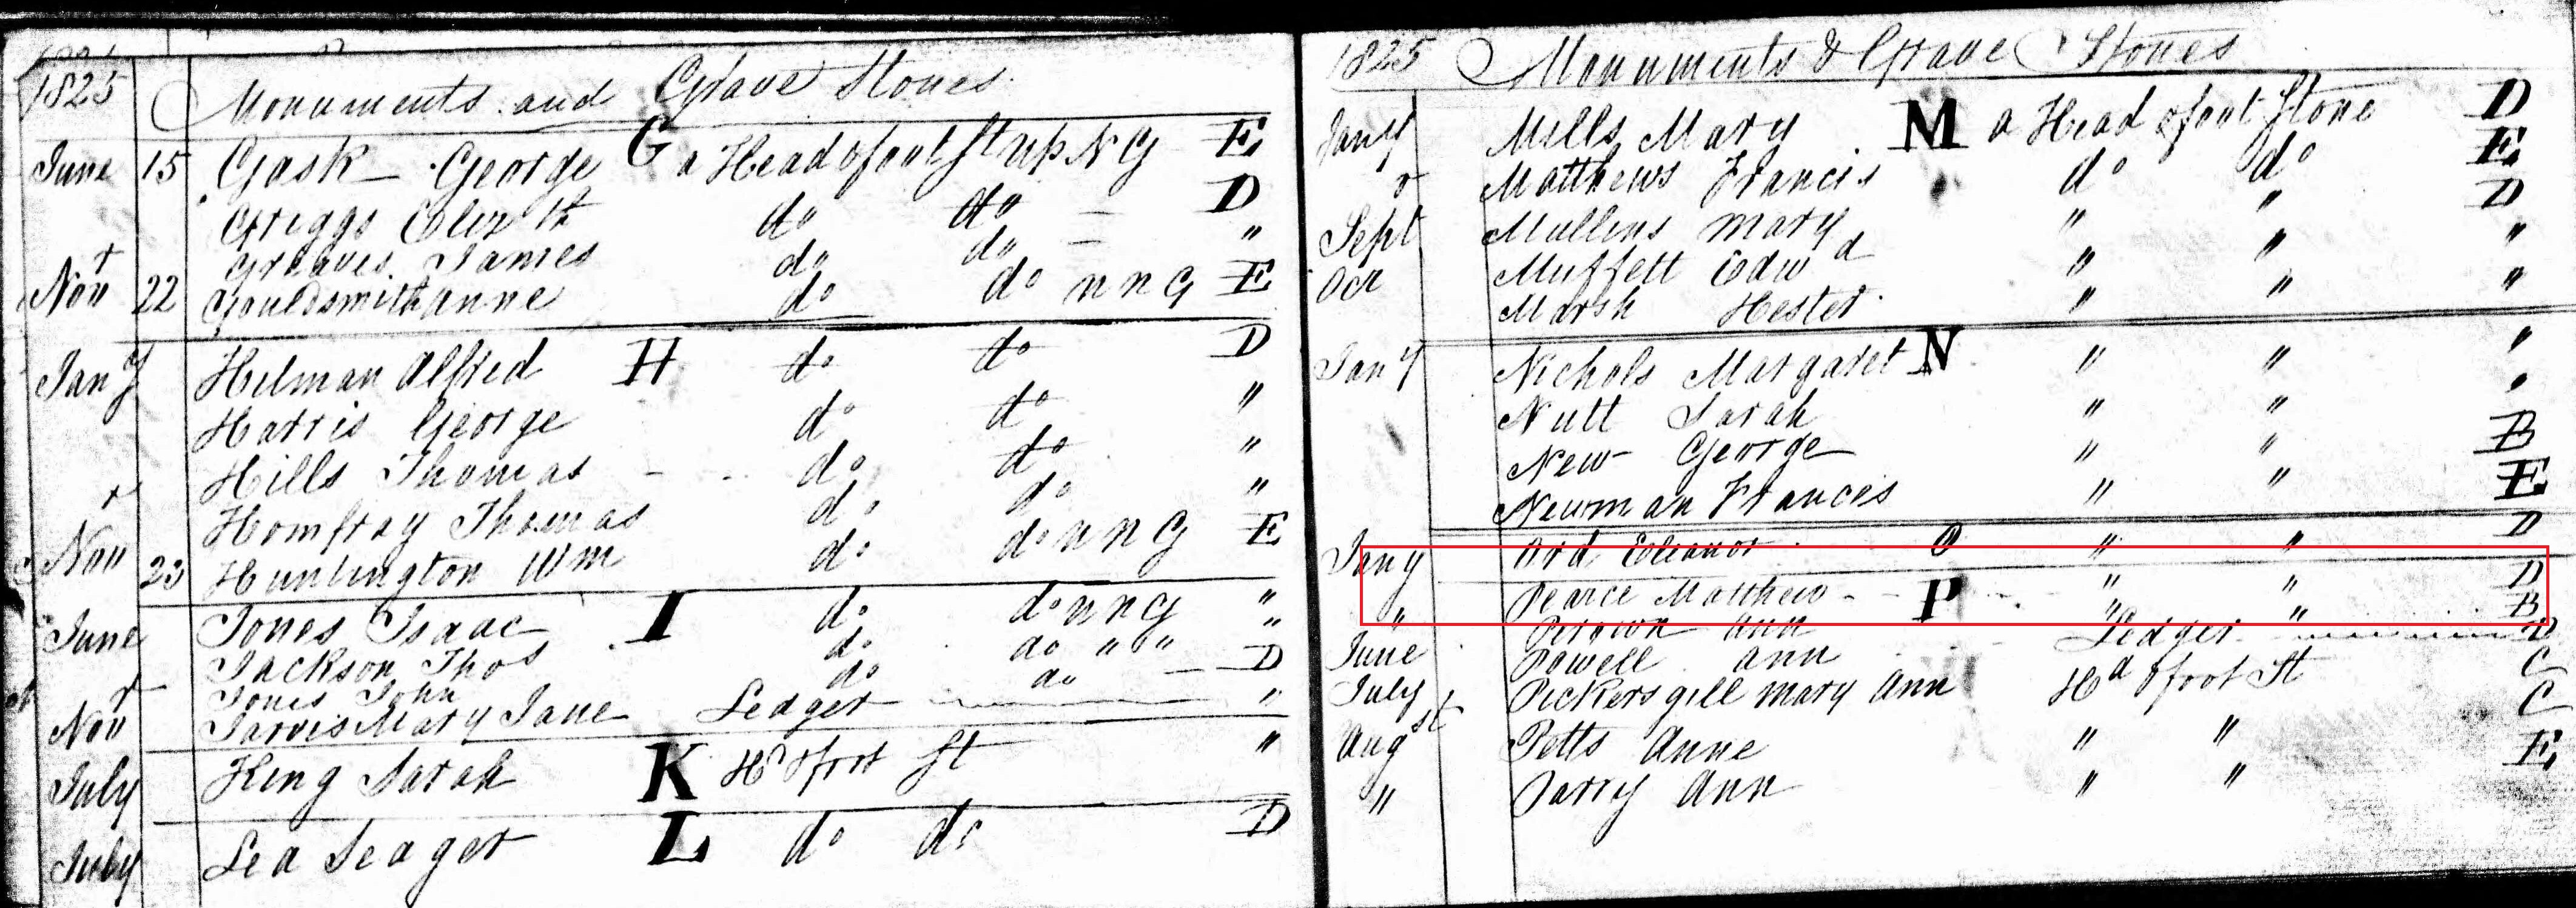 1825 Monuments and Grave Stones
June 15 Gask George G a Head & foot St up N G E
Griggs Eliz th do do D
Greaves James do do "
Nov r 22 Gouldsmith anne do do n n G E
Jany Hilman Alfred H do do D
Harris George do do "
Hills Thomas do do "
Homfray Thomas do do "
Nov r 23 Huntington Wm do do n n G E
June Jones Isaac I do do n n G "
Jackson Thos do do " " "
Jones John do do D
Nov r Jarvis Mary Jane Ledger "
July King Sarah K Hd & foot St "
July Lea Seager L do do D
1825 Monuments & Grave Stones
Jany Mills Mary M a Head & foot Stone D
Matthews Francis do do E
Sept r Mullins Mary " " D
Muffett Edwd " " "
Oct Marsh Hester " " "
Jany Nichols Margaret N " " "
Nutt Sarah " " "
New George " " B
Newman Frances " " E
Jany Ord Eleanor O " " D
Pearce Matthew P " " D
" Perown Ann " " B
June Powell Ann Ledger D
July Pickersgill Mary Ann Hd & foot St C
Augst Petts Anne " " C
" Parry Ann " " E